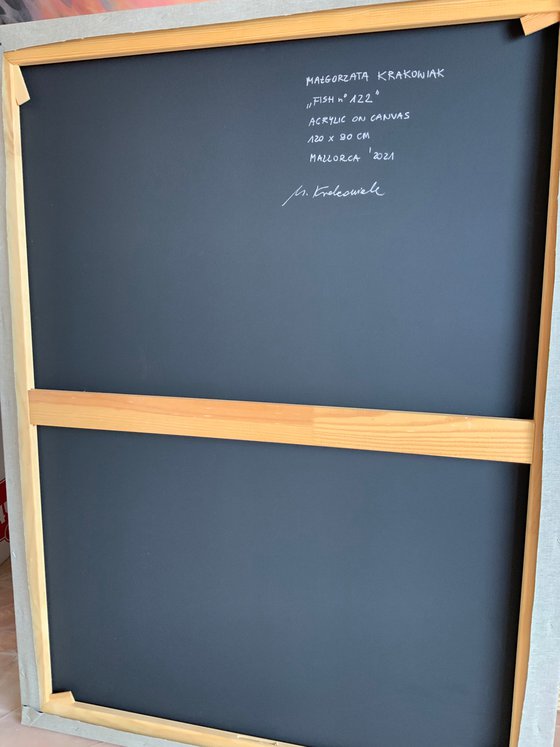 MAŁGORZATA KRAKOWIAK
„FISH nº 122"
ACRYLIC ON CANVAS
120 x 90 CM
MALLORCA '2021
M. Krakowiak